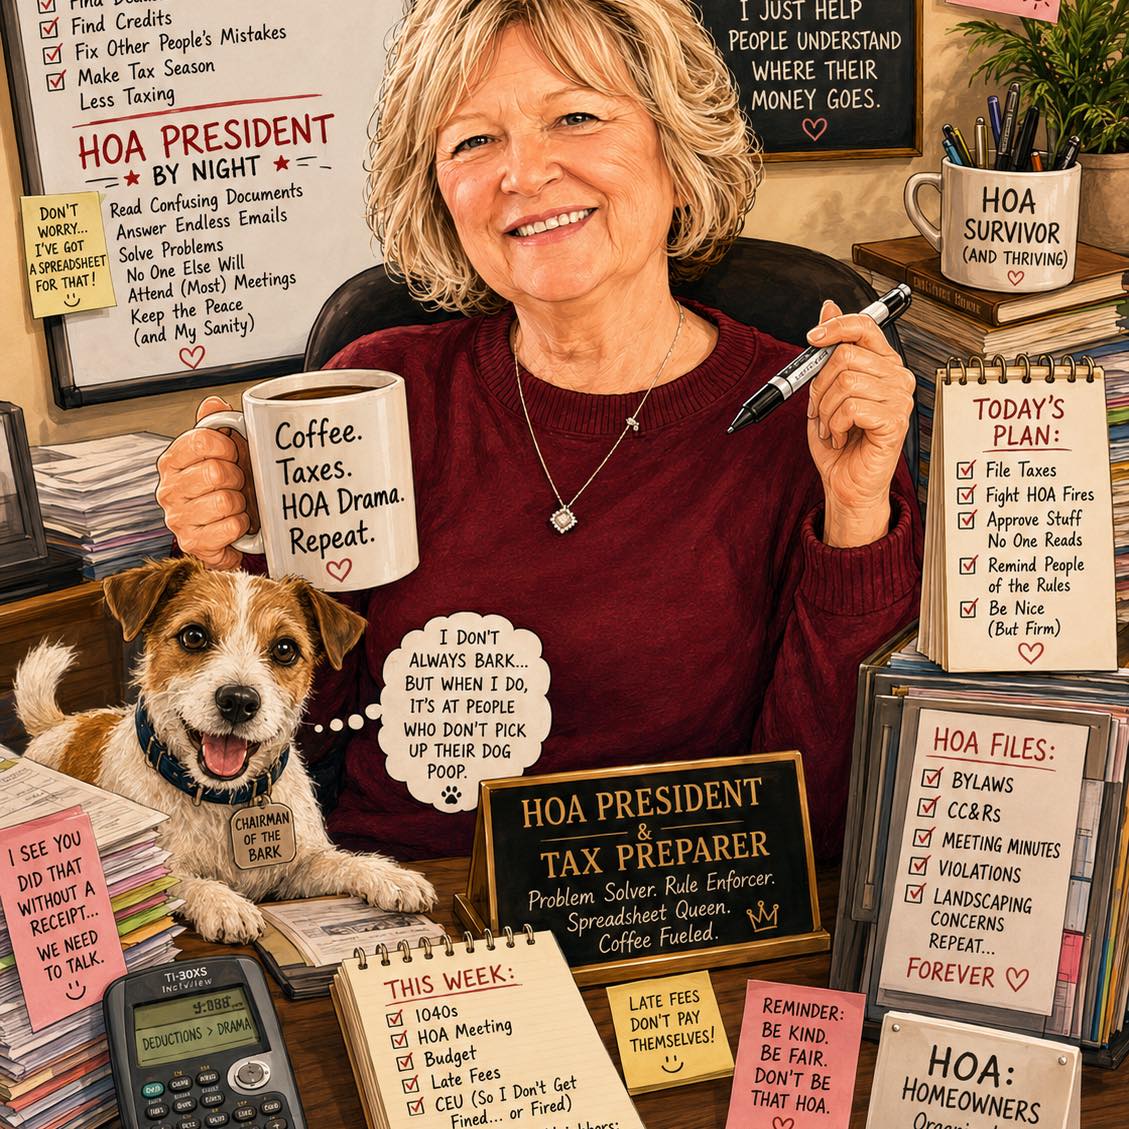 Find Credits
Fix Other People's Mistakes
Make Tax Season
Less Taxing
HOA PRESIDENT
BY NIGHT
Read Confusing Documents
Answer Endless Emails
Solve Problems
No One Else Will
Attend (Most) Meetings
Keep the Peace
(and My Sanity)
DON'T
WORRY...
I'VE GOT
A SPREADSHEET
FOR THAT!
I JUST HELP
PEOPLE UNDERSTAND
WHERE THEIR
MONEY GOES.
HOA
SURVIVOR
(AND THRIVING)
Coffee.
Taxes.
HOA Drama.
Repeat.
TODAY'S
PLAN:
File Taxes
Fight HOA Fires
Approve Stuff
No One Reads
Remind People
of the Rules
Be Nice
(But Firm)
I DON'T
ALWAYS BARK...
BUT WHEN I DO,
IT'S AT PEOPLE
WHO DON'T PICK
UP THEIR DOG
POOP.
CHAIRMAN
OF THE
BARK
HOA PRESIDENT
&
TAX PREPARER
Problem Solver. Rule Enforcer.
Spreadsheet Queen.
Coffee Fueled.
HOA FILES:
BYLAWS
CC&Rs
MEETING MINUTES
VIOLATIONS
LANDSCAPING
CONCERNS
REPEAT...
FOREVER
I SEE YOU
DID THAT
WITHOUT A
RECEIPT...
WE NEED
TO TALK.
TI-30XS
DEDUCTIONS > DRAMA
THIS WEEK:
1040s
HOA Meeting
Budget
Late Fees
CEU (So I Don't Get
Fined... or Fired)
LATE FEES
DON'T PAY
THEMSELVES!
REMINDER:
BE KIND.
BE FAIR.
DON'T BE
THAT HOA.
HOA:
HOMEOWNERS